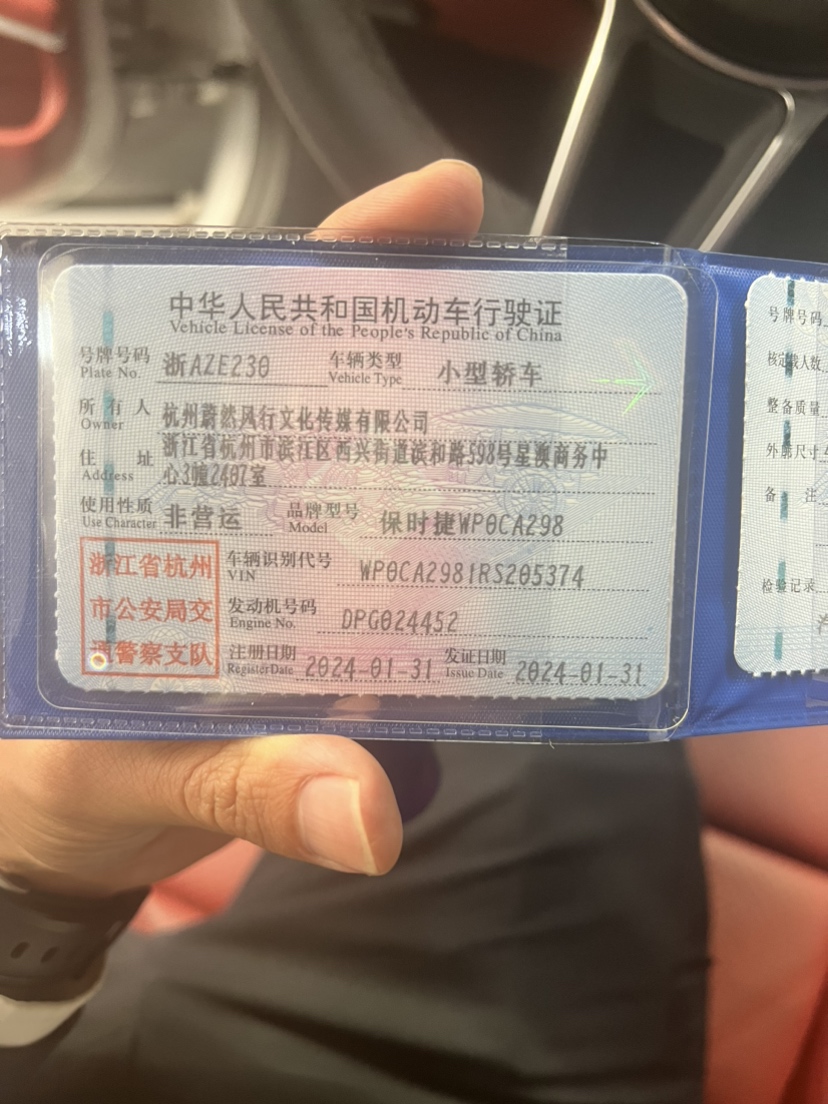 中华人民共和国机动车行驶证
Vehicle License of the People's Republic of China
号牌号码 浙AZE230 车辆类型 小型轿车
Plate No. Vehicle Type
所有人 杭州蔚然风行文化传媒有限公司
Owner
住址 浙江省杭州市滨江区西兴街道滨和路598号星澳商务中
Address 心3幢2407室
使用性质 非营运 品牌型号 保时捷WP0CA298
Use Character Model
浙江省杭州
市公安局交
通警察支队
车辆识别代号 WP0CA2981RS205374
VIN
发动机号码 DPG024452
Engine No.
注册日期 2024-01-31 发证日期 2024-01-31
Register Date Issue Date
号牌号码
核定载人数
整备质量
外廓尺寸
备注
检验记录